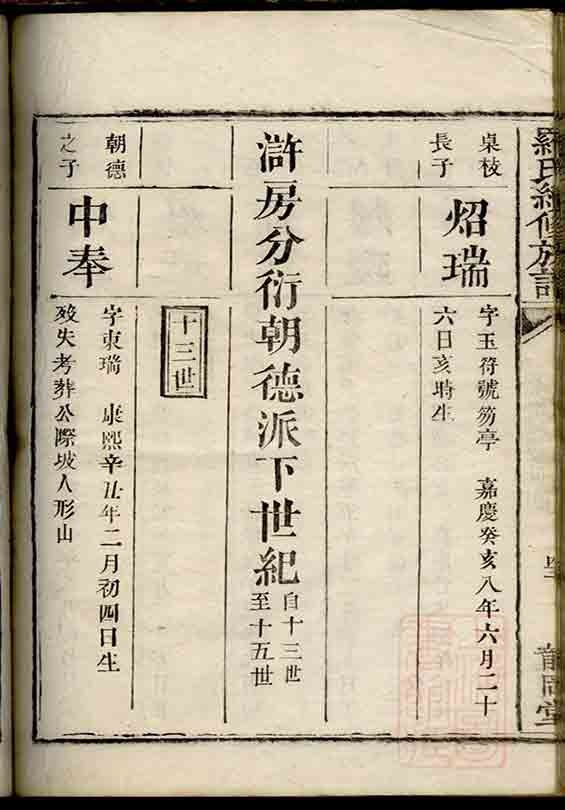 羅氏續修族譜
龍岡堂
桌枝
長子
炤瑞
字玉符號笏亭 嘉慶癸亥八年六月二十
六日亥時生
滸房分衍朝德派下世紀
自十三世
至十五世
十三世
朝德
之子
中奉
字東瑞 康熙辛丑年二月初四日生
歿失考葬公際坡人形山